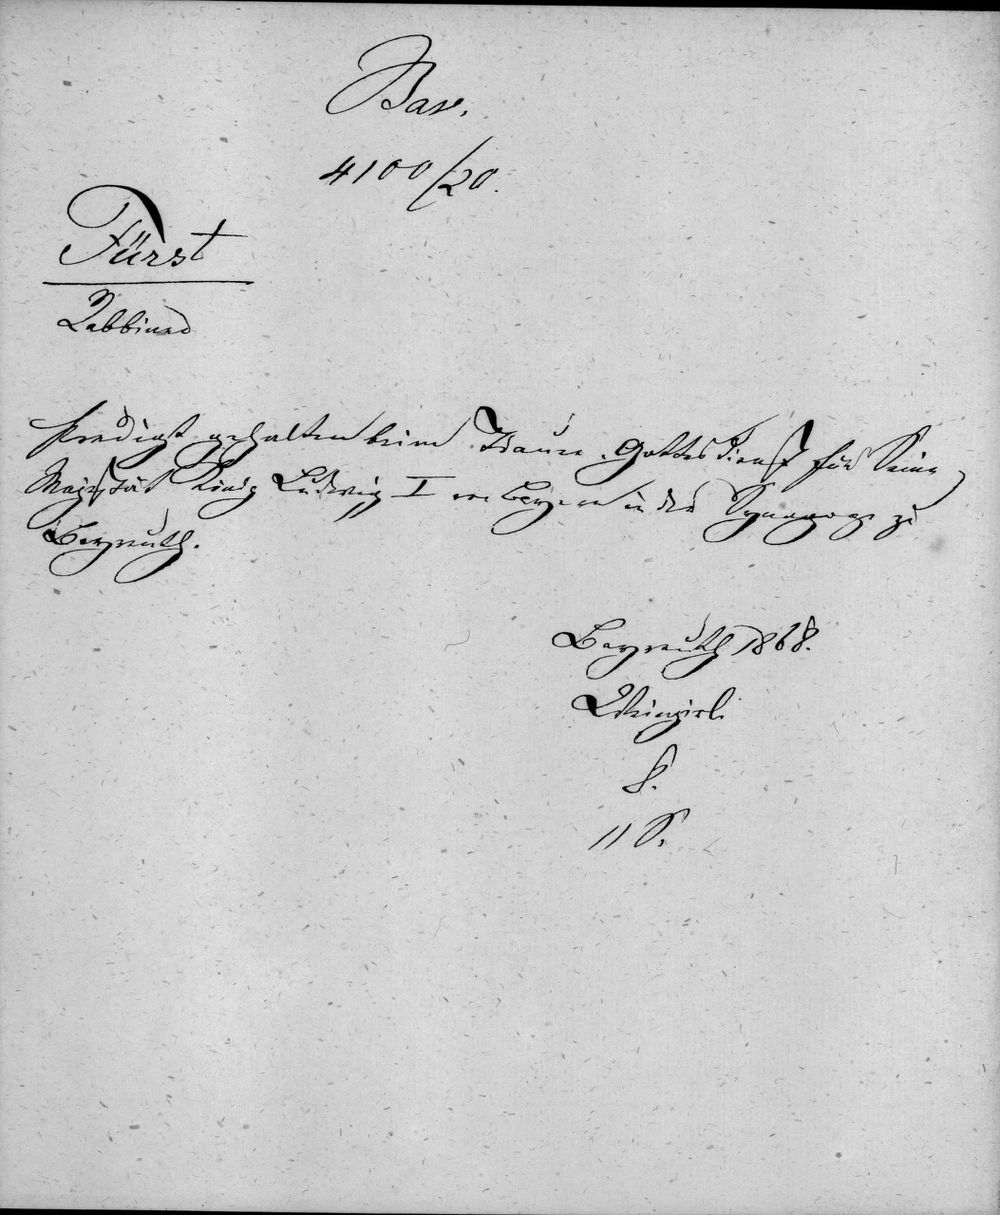 Bav.
4100/20.
Fürst
Rabbiner
Predigt gehalten beim Trauer-Gottesdienst für Seine
Majestät König Ludwig I von Bayern in der Synagoge zu
Bayreuth.
Bayreuth 1868.
8.
11 S.